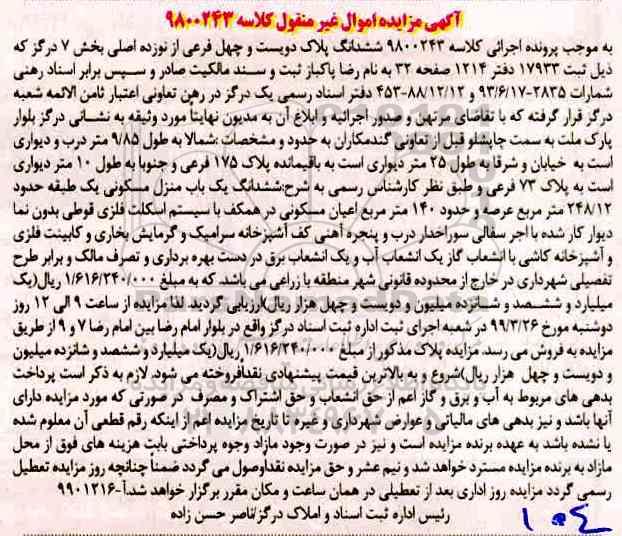 آگهی مزایده اموال غیر منقول کلاسه ۹۸۰۰۲۴۳
به موجب پرونده اجرائی کلاسه ۹۸۰۰۲۴۳ ششدانگ پلاک دویست و چهل فرعی از نوزده اصلی بخش ۷ درگز که
ذیل ثبت ۱۷۹۳۳ دفتر ۱۲۱۴ صفحه ۳۲ به نام رضا پاکباز ثبت و سند مالکیت صادر و سپس برابر اسناد رهنی
شمارات ۲۸۳۵-۹۳/۶/۱۷ و ۸۸/۱۲/۱۲-۴۵۳ دفتر اسناد رسمی یک درگز در رهن تعاونی اعتبار ثامن الائمه شعبه
درگز قرار گرفته که با تقاضای مرتهن و صدور اجرائیه و ابلاغ آن به مدیون نهایتاً مورد وثیقه به نشانی درگز بلوار
پارک ملت به سمت چاپشلو قبل از تعاونی گندمکاران به حدود و مشخصات :شمالا به طول ۹/۸۵ متر درب و دیواری
است به خیابان و شرقا به طول ۲۵ متر دیواری است به باقیمانده پلاک ۱۷۵ فرعی و جنوبا به طول ۱۰ متر دیواری
است به پلاک ۷۳ فرعی و طبق نظر کارشناس رسمی به شرح:ششدانگ یک باب منزل مسکونی یک طبقه حدود
۲۴۸/۱۲ متر مربع عرصه و حدود ۱۴۰ متر مربع اعیان مسکونی در همکف با سیستم اسکلت فلزی قوطی بدون نما
دیوار کار شده با اجر سفالی سوراخدار درب و پنجره آهنی کف آشپزخانه سرامیک و گرمایش بخاری و کابینت فلزی
و آشپزخانه کاشی با انشعاب گاز یک انشعاب آب و یک انشعاب برق در دست بهره برداری و تصرف مالک و برابر طرح
تفصیلی شهرداری در خارج از محدوده قانونی شهر منطقه با زراعی می باشد. که به مبلغ ۱/۶۱۶/۲۴۰/۰۰۰ ریال(یک
میلیارد و ششصد و شانزده میلیون و دویست و چهل هزار ریال)ارزیابی گردید. لذا مزایده از ساعت ۹ الی ۱۲ روز
دوشنبه مورخ ۹۹/۳/۲۶ در شعبه اجرای ثبت اداره ثبت اسناد درگز واقع در بلوار امام رضا بین امام رضا ۷ و ۹ از طریق
مزایده به فروش می رسد. مزایده پلاک مذکور از مبلغ ۱/۶۱۶/۲۴۰/۰۰۰ ریال(یک میلیارد و ششصد و شانزده میلیون
و دویست و چهل هزار ریال)شروع و به بالاترین قیمت پیشنهادی نقدافروخته می شود. لازم به ذکر است پرداخت
بدهی های مربوط به آب و برق و گاز اعم از حق انشعاب و حق اشتراک و مصرف در صورتی که مورد مزایده دارای
آنها باشد و نیز بدهی های مالیاتی و عوارض شهرداری و غیره تا تاریخ مزایده اعم از اینکه رقم قطعی آن معلوم شده
یا نشده باشد به عهده برنده مزایده است و نیز در صورت وجود مازاد وجوه پرداختی بابت هزینه های فوق از محل
مازاد به برنده مزایده مسترد خواهد شد و نیم عشر و حق مزایده نقداًوصول می گردد ضمناً چنانچه روز مزایده تعطیل
رسمی گردد مزایده روز اداری بعد از تعطیلی در همان ساعت و مکان مقرر برگزار خواهد شد.آ-۹۹۰۱۲۱۶
رئیس اداره ثبت اسناد و املاک درگز/ناصر حسن زاده
۱۰۰۴